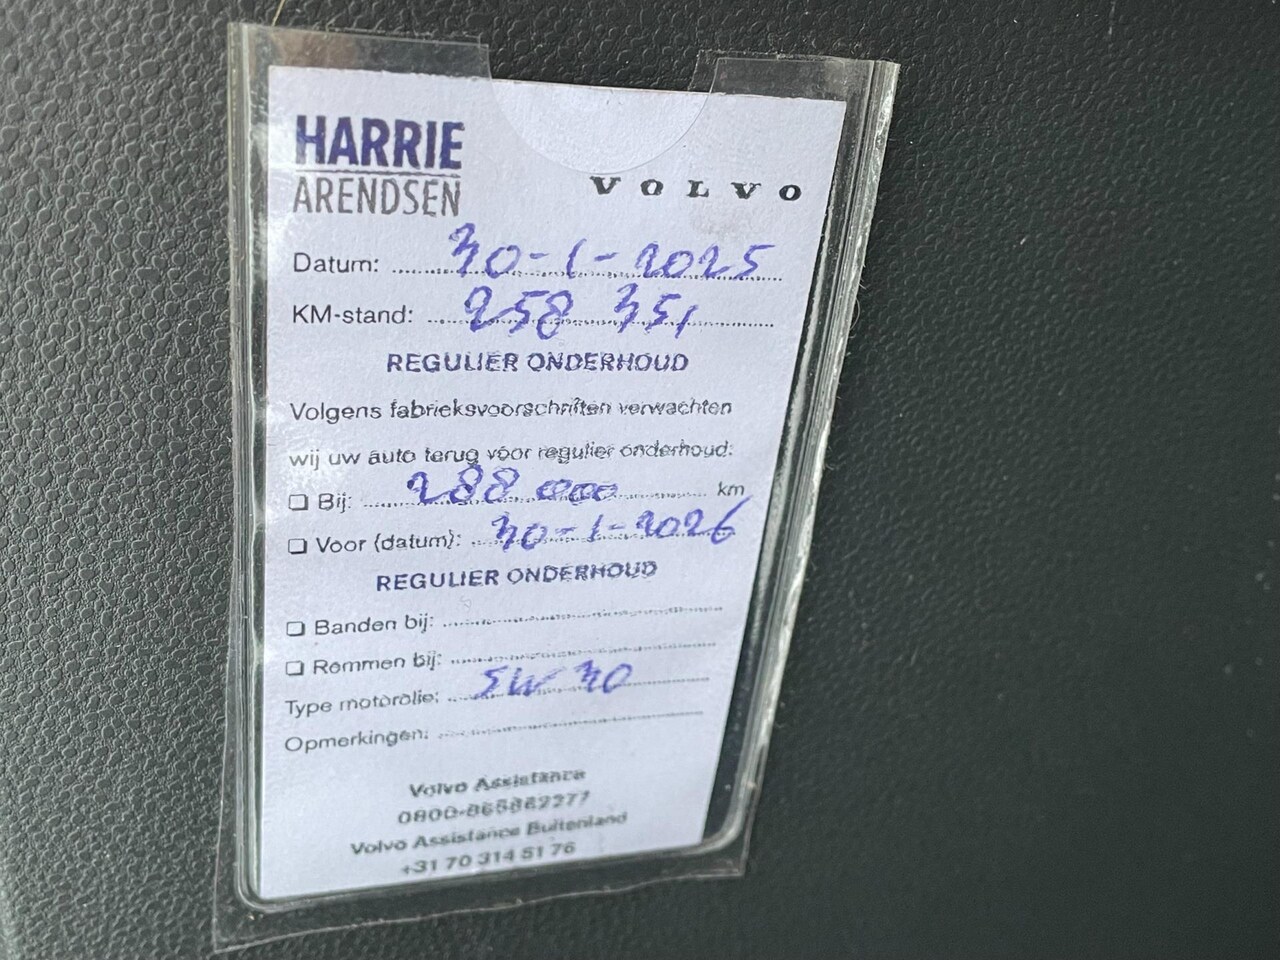 HARRIE
ARENDSEN
VOLVO
Datum: 30-1-2025
KM-stand: 258 351
REGULIER ONDERHOUD
Volgens fabrieksvoorschriften verwachten
wij uw auto terug vóór regulier onderhoud:
❑ Bij: 288 000 km
❑ Voor (datum): 30-1-2026
REGULIER ONDERHOUD
❑ Banden bij:
❑ Remmen bij:
Type motorolie: 5W 30
Opmerkingen:
Volvo Assistance
Volvo Assistance Buitenland
+31 70 314 51 76